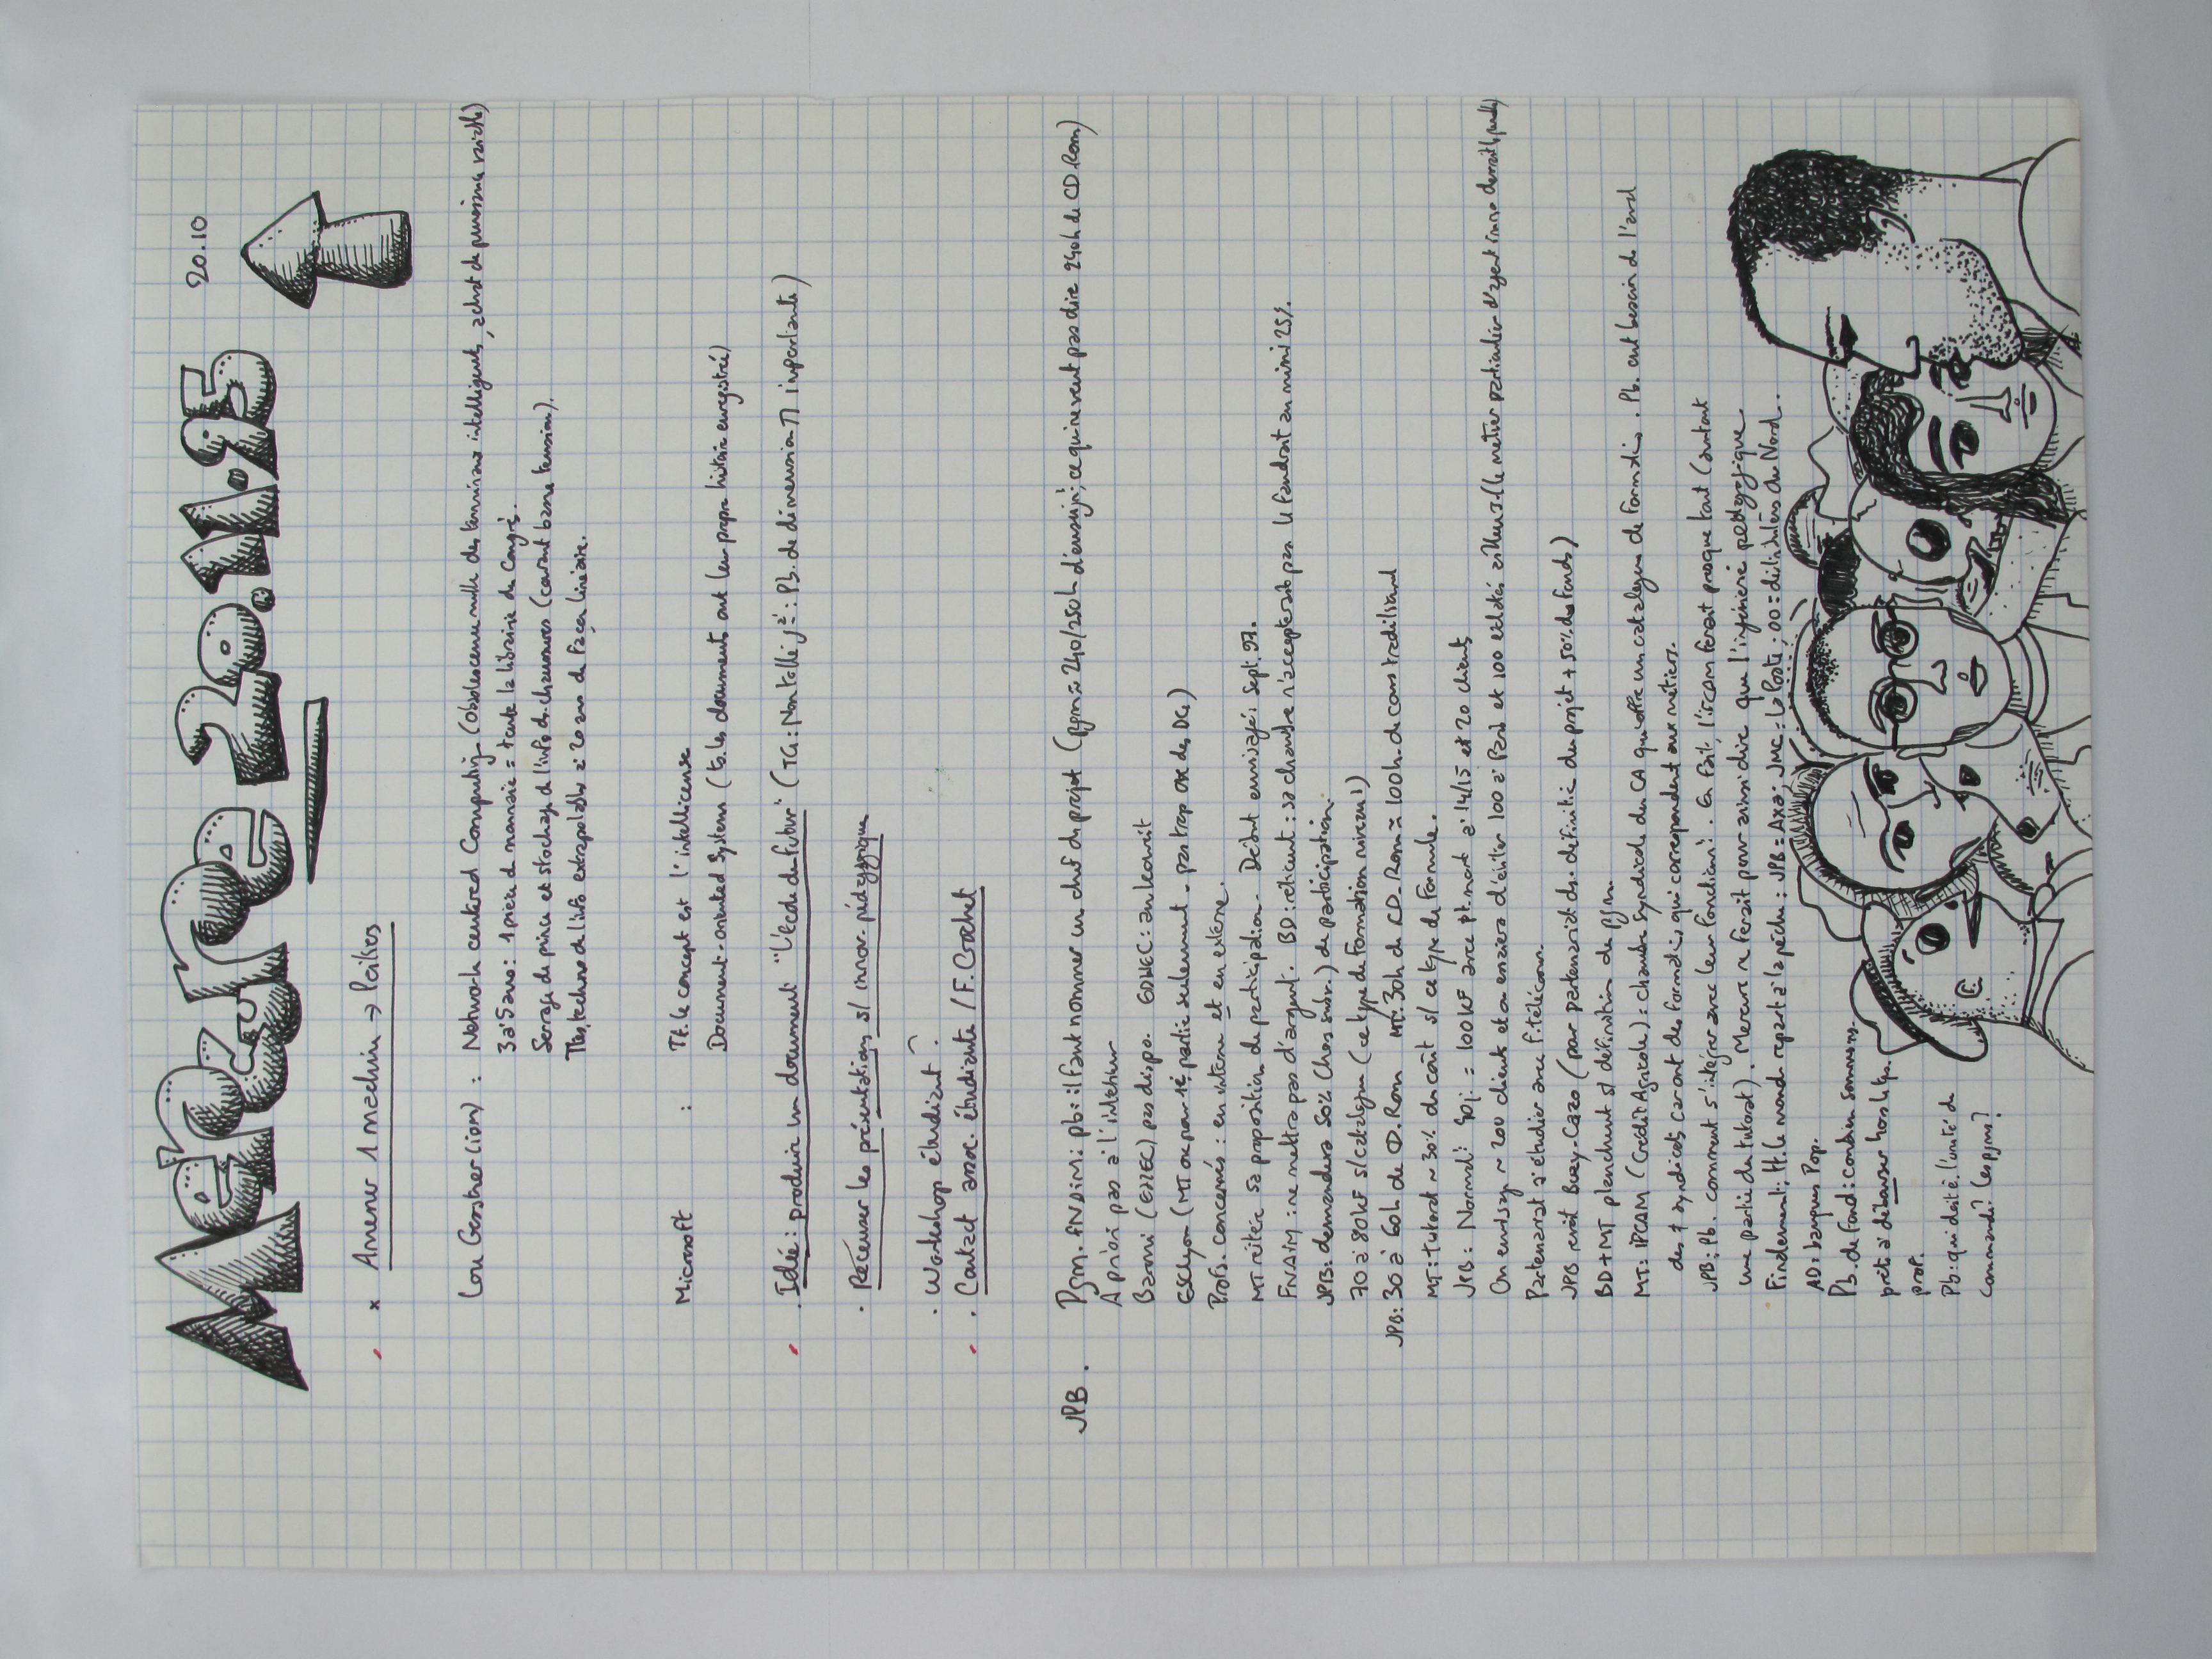 Mercure_20.11.95
20.10
× Amener 1 machin → Poitiers
Lou Gerstner (ions) : Network centered Computing (Obsolescence nulle des terminaux intelligents, achat de puissance variable)
3 à 5 ans : 1 pièce de monnaie = toute la librairie du Congrès.
Serrage de pince et stockage d'info ds. chaussures (courant basse tension).
Ttes techno de l'info extrapolables à 20 ans de façon linéaire.
Microsoft : Tt. le concept est l'intellicense
Document-oriented Systems (ts. les documents ont leur propre histoire enregistrée)
. Idée : produire un document "L'école du futur" (TG : Non taille j : Pb. de dimension TT importante)
. Récenser les présentations s/ innov. pédagogique
. Workshop étudiant ?
. Contact assoc. étudiante / F. Crochet
JPB . Pgm. FNAIM : pb : il faut nommer un chef de projet (pgm ≈ 240/250h d'enseign ; ce qui ne veut pas dire 240h de CD.Rom)
A priori pas à l'intérieur
Barni (ESTEC) pas dispo. EDHEC : au key-unit
Eschyon (MT ok pour 1 partie seulement - pas trop ok des DG)
Profs. concernés : en interne et en externe.
MT réitère sa proposition de participation. Début envisagé : Sept. 97.
FNAIM : ne mettra pas d'argent. BD : réticent : sa chambre n'acceptera pas le fondant au mini 25%.
JPB : demandera 50% (hors subv.) de participation.
70 à 80kF s/ catalogue (ce type de formation niveau 1)
JPB : 30 à 60h de CD.Rom MT : 30h de CD-Rom ≈ 100h. de cours traditionnel
MT : tutorat ~ 30% du coût s/ ce type de formule.
JPB : Normal : 90j. = 100kF avec pt. mort à 14/15 et 20 clients
On envisag ~ 200 clients et on essaiera d'éviter 100 à Paris et 100 éclatés ailleurs (le métier particulier d'agent immo devrait le permettre)
Partenariat à étudier avec F. télécom.
JPB revoit Buzy-Cazo (pour partenariat ds. définitio du projet + 50% de fonds)
BD + MT planchent s/ définition du pgm.
MT : IPCAM (Crédit Agricole) : chambre syndicale du CA qui offre un catalogue de formatio. Pb. ont besoin de l'aval
des ≠ syndicats car ont des formatio qui correspondent aux métiers.
JPB : Pb. comment s'intégrer avec leur fonction ? En fait, l'IFCAM ferait presque tout (surtout
une partie du tutorat). Mercure ne ferait pour ainsi dire que l'ingénierie pédagogique.
Finalement : tt. le monde repart à la pêche : JPB = Axa ; JMC = La Poste ; 00 = distributeurs du Nord.
AD : bagnus Pop.
Pb. de fond : combien sommes-ns.
prêt à débourser hors les tps.
prof.
Pb : qui doit à l'unité de
Commande ? (les pgms ?